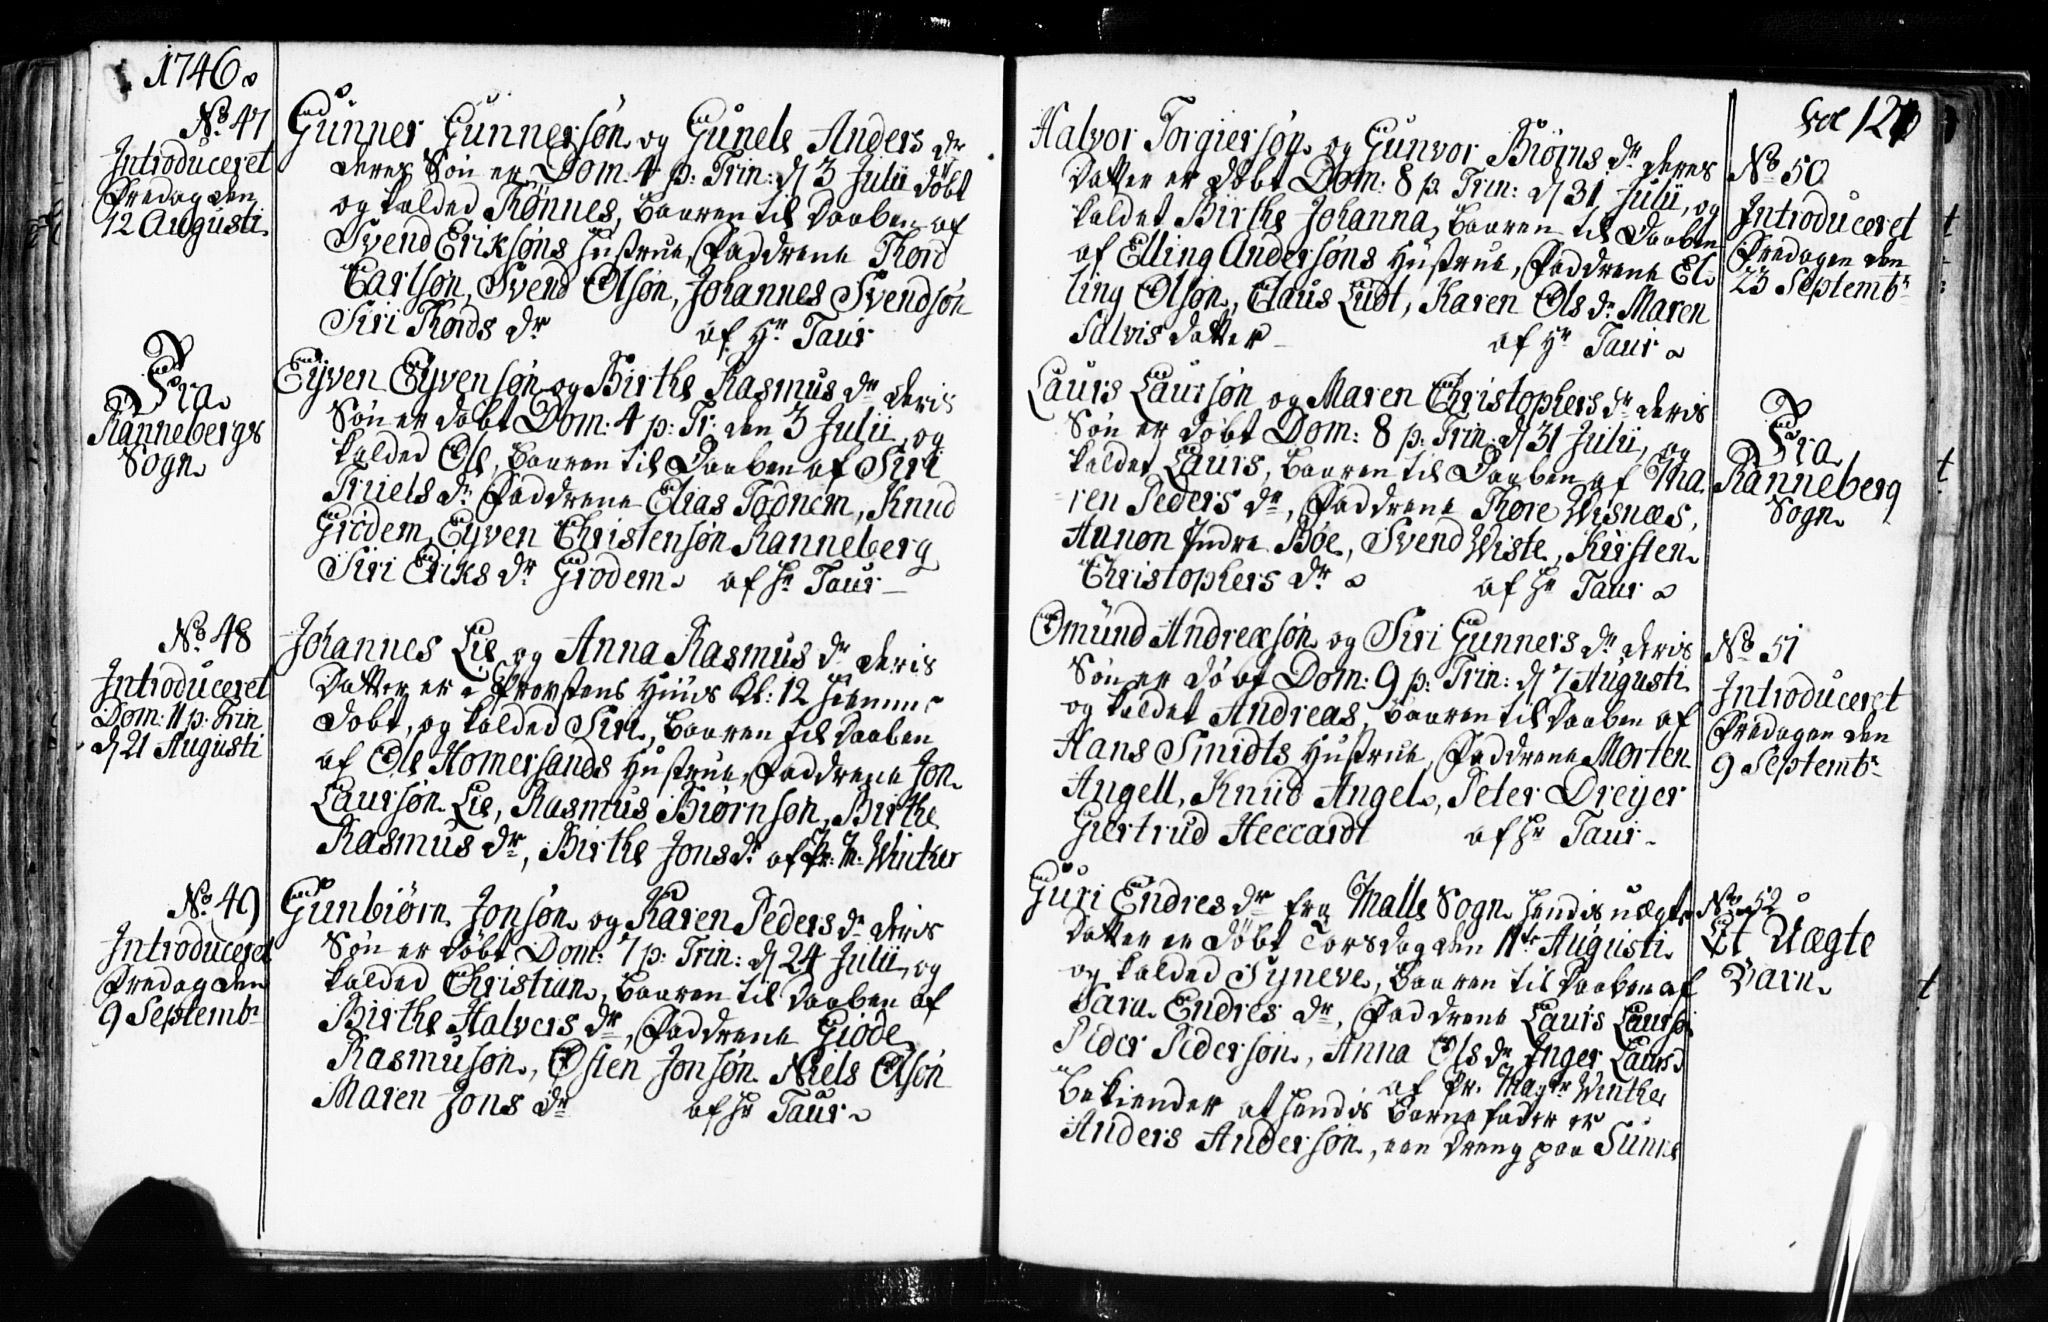 1746
No. 47
Introduceret
Fredag den
12 Augusti
Gunner Gunnersøn og Gunele Anders dr
deres Søn er Dom: 4 p: Trin: d 3 Julii døbt
og kalded Tønnes, baaren til Daaben af
Svend Eriksøns Hustrue, Faddrene Thord
Carlsøn, Svend Olsøn, Johannes Svendsøn
Siri Thords dr af Hr Taur
Fra
Ranneberg
Sogn
Eyven Eyvensøn og Birthe Rasmus dr deris
Søn er døbt Dom: 4 p: Tr: den 3 Julii, og
kalded Ole, baaren til Daaben af Siri
Truels dr Faddrene Elias Todnem, Knud
Grødem, Eyven Christensøn Ranneberg
Siri Eriks dr Grodem af Hr Taur
No. 48
Introduceret
Dom: 11 p: Trin
d 21 Augusti
Johannes Lie og Anna Rasmus dr deris
Datter er i Provstens Huus Kl: 12 hiemme
døbt, og kalded Siri, baaren til Daaben
af Ole Homersands Hustrue, Faddrene Jon
Laursøn Lie, Rasmus Biørnsøn, Birthe
Rasmus dr, Birthe Jons dr af Pr: M: Winther
No. 49
Introduceret
Fredag den
9 Septembr
Gunbiørn Jonsøn og Karen Peders dr deris
Søn er døbt Dom: 7 p: Trin: d 24 Julii, og
kalded Christian, baaren til Daaben af
Birthe Halvers dr, Faddrene Giøde
Rasmusøn, Østen Jonsøn Niels Olsøn
Maren Jons dr af Hr Taur
Fol 121
Halvor Torgiersøn og Gunvor Biørns dr deres
Datter er døbt Dom: 8 p. Trin: d 31 Julii, og
kaldet Birthe Johanna, baaren til Daaben
af Elling Andersøns Hustrue, Faddrene El
ling Olsøn, Claus Ludt, Karen Ols dr Maren
Salvis datter af Hr Taur
No 50
Introduceret
Fredagen den
23 Septembr
Laurs Laursøn og Maren Christophers dr deris
Søn er døbt Dom: 8 p. Trin: d 31 Julii, og
kaldet Laurs, baaren til Daaben af Ma
ren Peders dr, Faddrene Thore Wisnæs,
Aanon Indre Bøe, Svend Wiste, Kirsten
Christophers dr af Hr Taur
Fra
Ranneberg
Sogn
Omund Andreæsøn og Siri Gunners dr deris
Søn er døbt Dom: 9 p: Trin: d 7 Augusti
og kaldet Andreas, baaren til Daaben af
Hans Smidts Hustrue, Faddrene Morten
Angell, Knud Angel, Peter Dreyer
Giertrud Heccardt af Hr Taur
No 51
Introduceret
Fredagen den
9 Septembr
Guri Endres dr fra Malle Sogn hendis uægte
Datter er døbt Torsdag den 11te Augusti
og kalded Syneve, baaren til Daaben af
Sara Endres dr, Faddrene Laurs Laursø
Peder Pedersøn, Anna Ols dr Inger Laurs d
af Pr. Magr Winther
bekiender at hendis Barnefader er
Anders Andersøn, een Dreng paa Sunne
No 52
Et Uægte
Barn